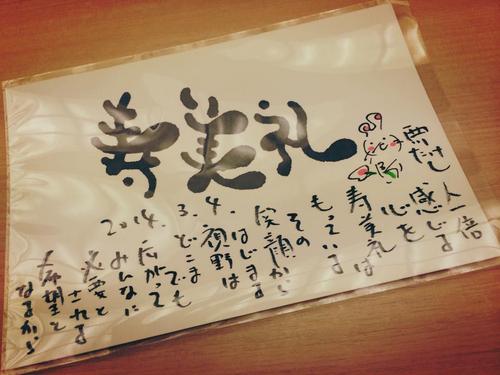 寿美礼
人一倍
感じる
心を
寿美礼は
もっている
その
笑顔から
はじまる
視野は
どこまでも
広がって
みんなに
必要と
される
希望と
なるから
2014.3.4.